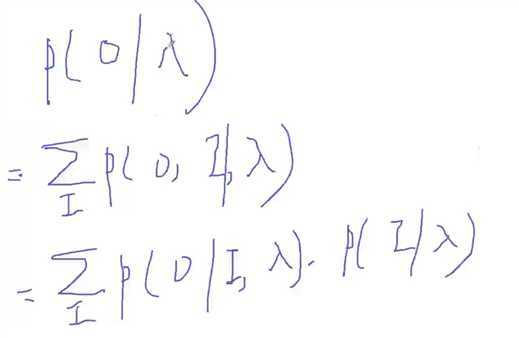 P(O|λ)
= ∑_I P(O, I|λ)
= ∑_I P(O|I, λ)· P(I|λ)